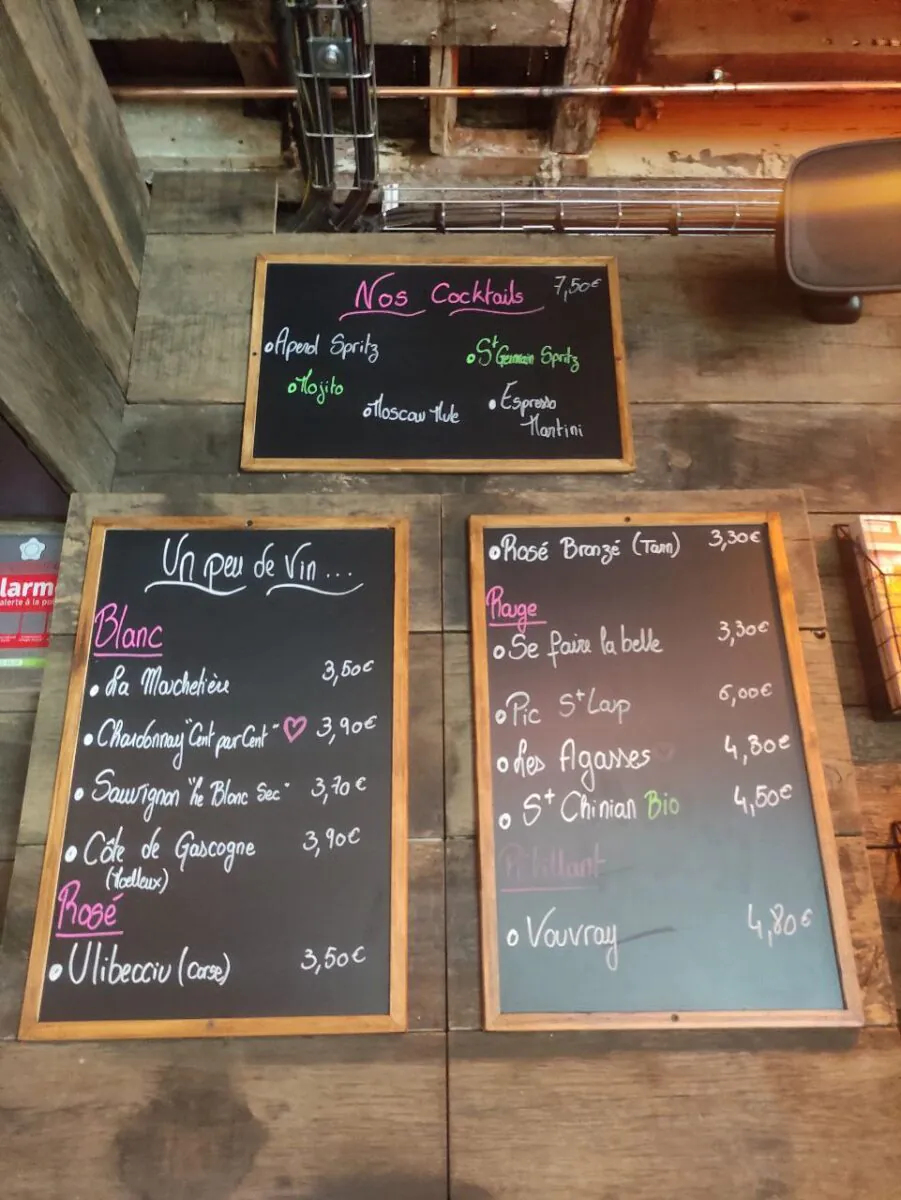 Nos Cocktails 7,50€
• Aperol Spritz
• St Germain Spritz
• Mojito
• Moscow Mule
• Espresso
Martini
Un peu de Vin ...
Blanc
• La Marchelière 3,50€
• Chardonnay "Cent par Cent" ♡ 3,90€
• Sauvignon "Le Blanc Sec" 3,70€
• Côte de Gascogne 3,90€
(Moelleux)
Rosé
• Ulibecciu (Corse) 3,50€
• Rosé Bronzé (Tarn) 3,30€
Rouge
• Se faire la belle 3,30€
• Pic St Loup 6,00€
• Les Agasses 4,80€
• St Chinian Bio 4,50€
Pétillant
• Vouvray 4,80€
larm
alerte à la po